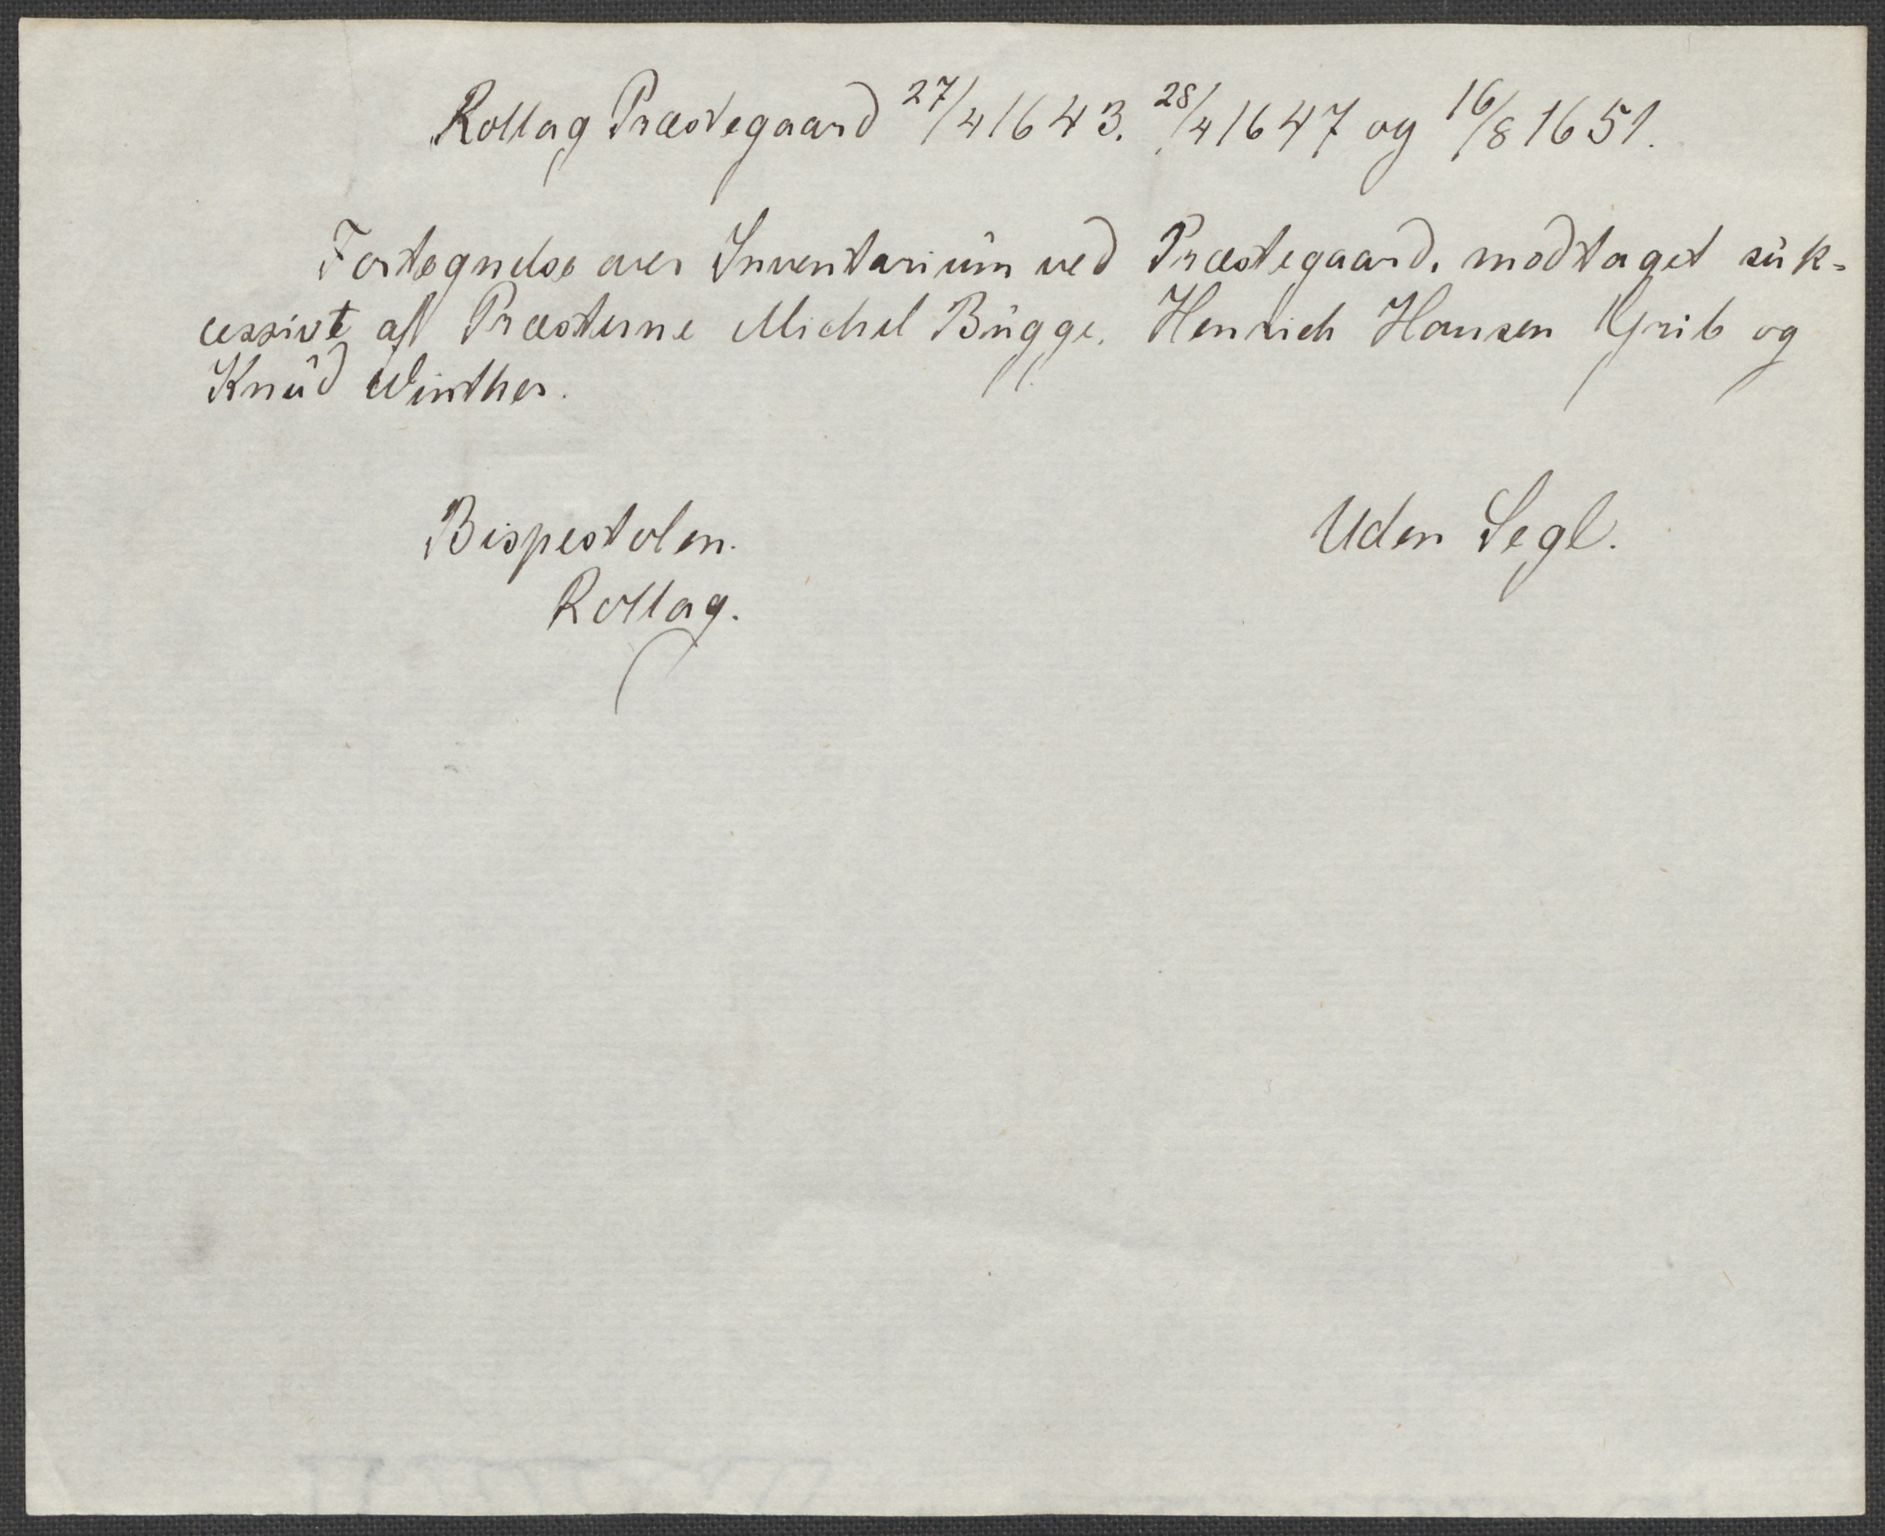 Rollag Præstegaard 27/4 1643. 28/4 1647 og 16/8 1651.
Fortegnelse over Inventarium ved Præstegaard, modtaget suk-
cessivt af Præsterne Michel Bugge, Henrich Hansen Grib og
Knud Winther.
Bispestolen.
Uden Segl.
Rollag.